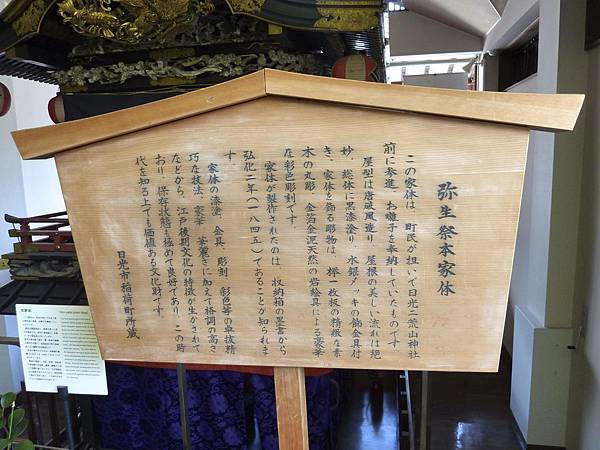 弥生祭本家体
この家体は、町民が担いで日光二荒山神社
前に参進、お囃子を奉納していたものです
屋型は唐破風造り、屋根の美しい流れは絶
妙、総体に黒漆塗り、水銀メッキの飾金具付
き、家体を飾る彫物は、欅一枚板の精緻な素
木の丸彫、金箔金泥天然の岩絵具による豪華
な彩色彫刻です。
家体が製作されたのは、収納箱の墨書から
弘化二年(一八四五)であることが知られま
す。
家体の漆塗、金具、彫刻、彩色等の卓抜精
巧な技法、豪華 華麗さに加えて格調の高さ
などから、江戸後期文化の特徴が生かされて
おり、保存状態も極めて良好であり、この時
代を知る上でも価値ある文化財です。
日光市稲荷町所蔵